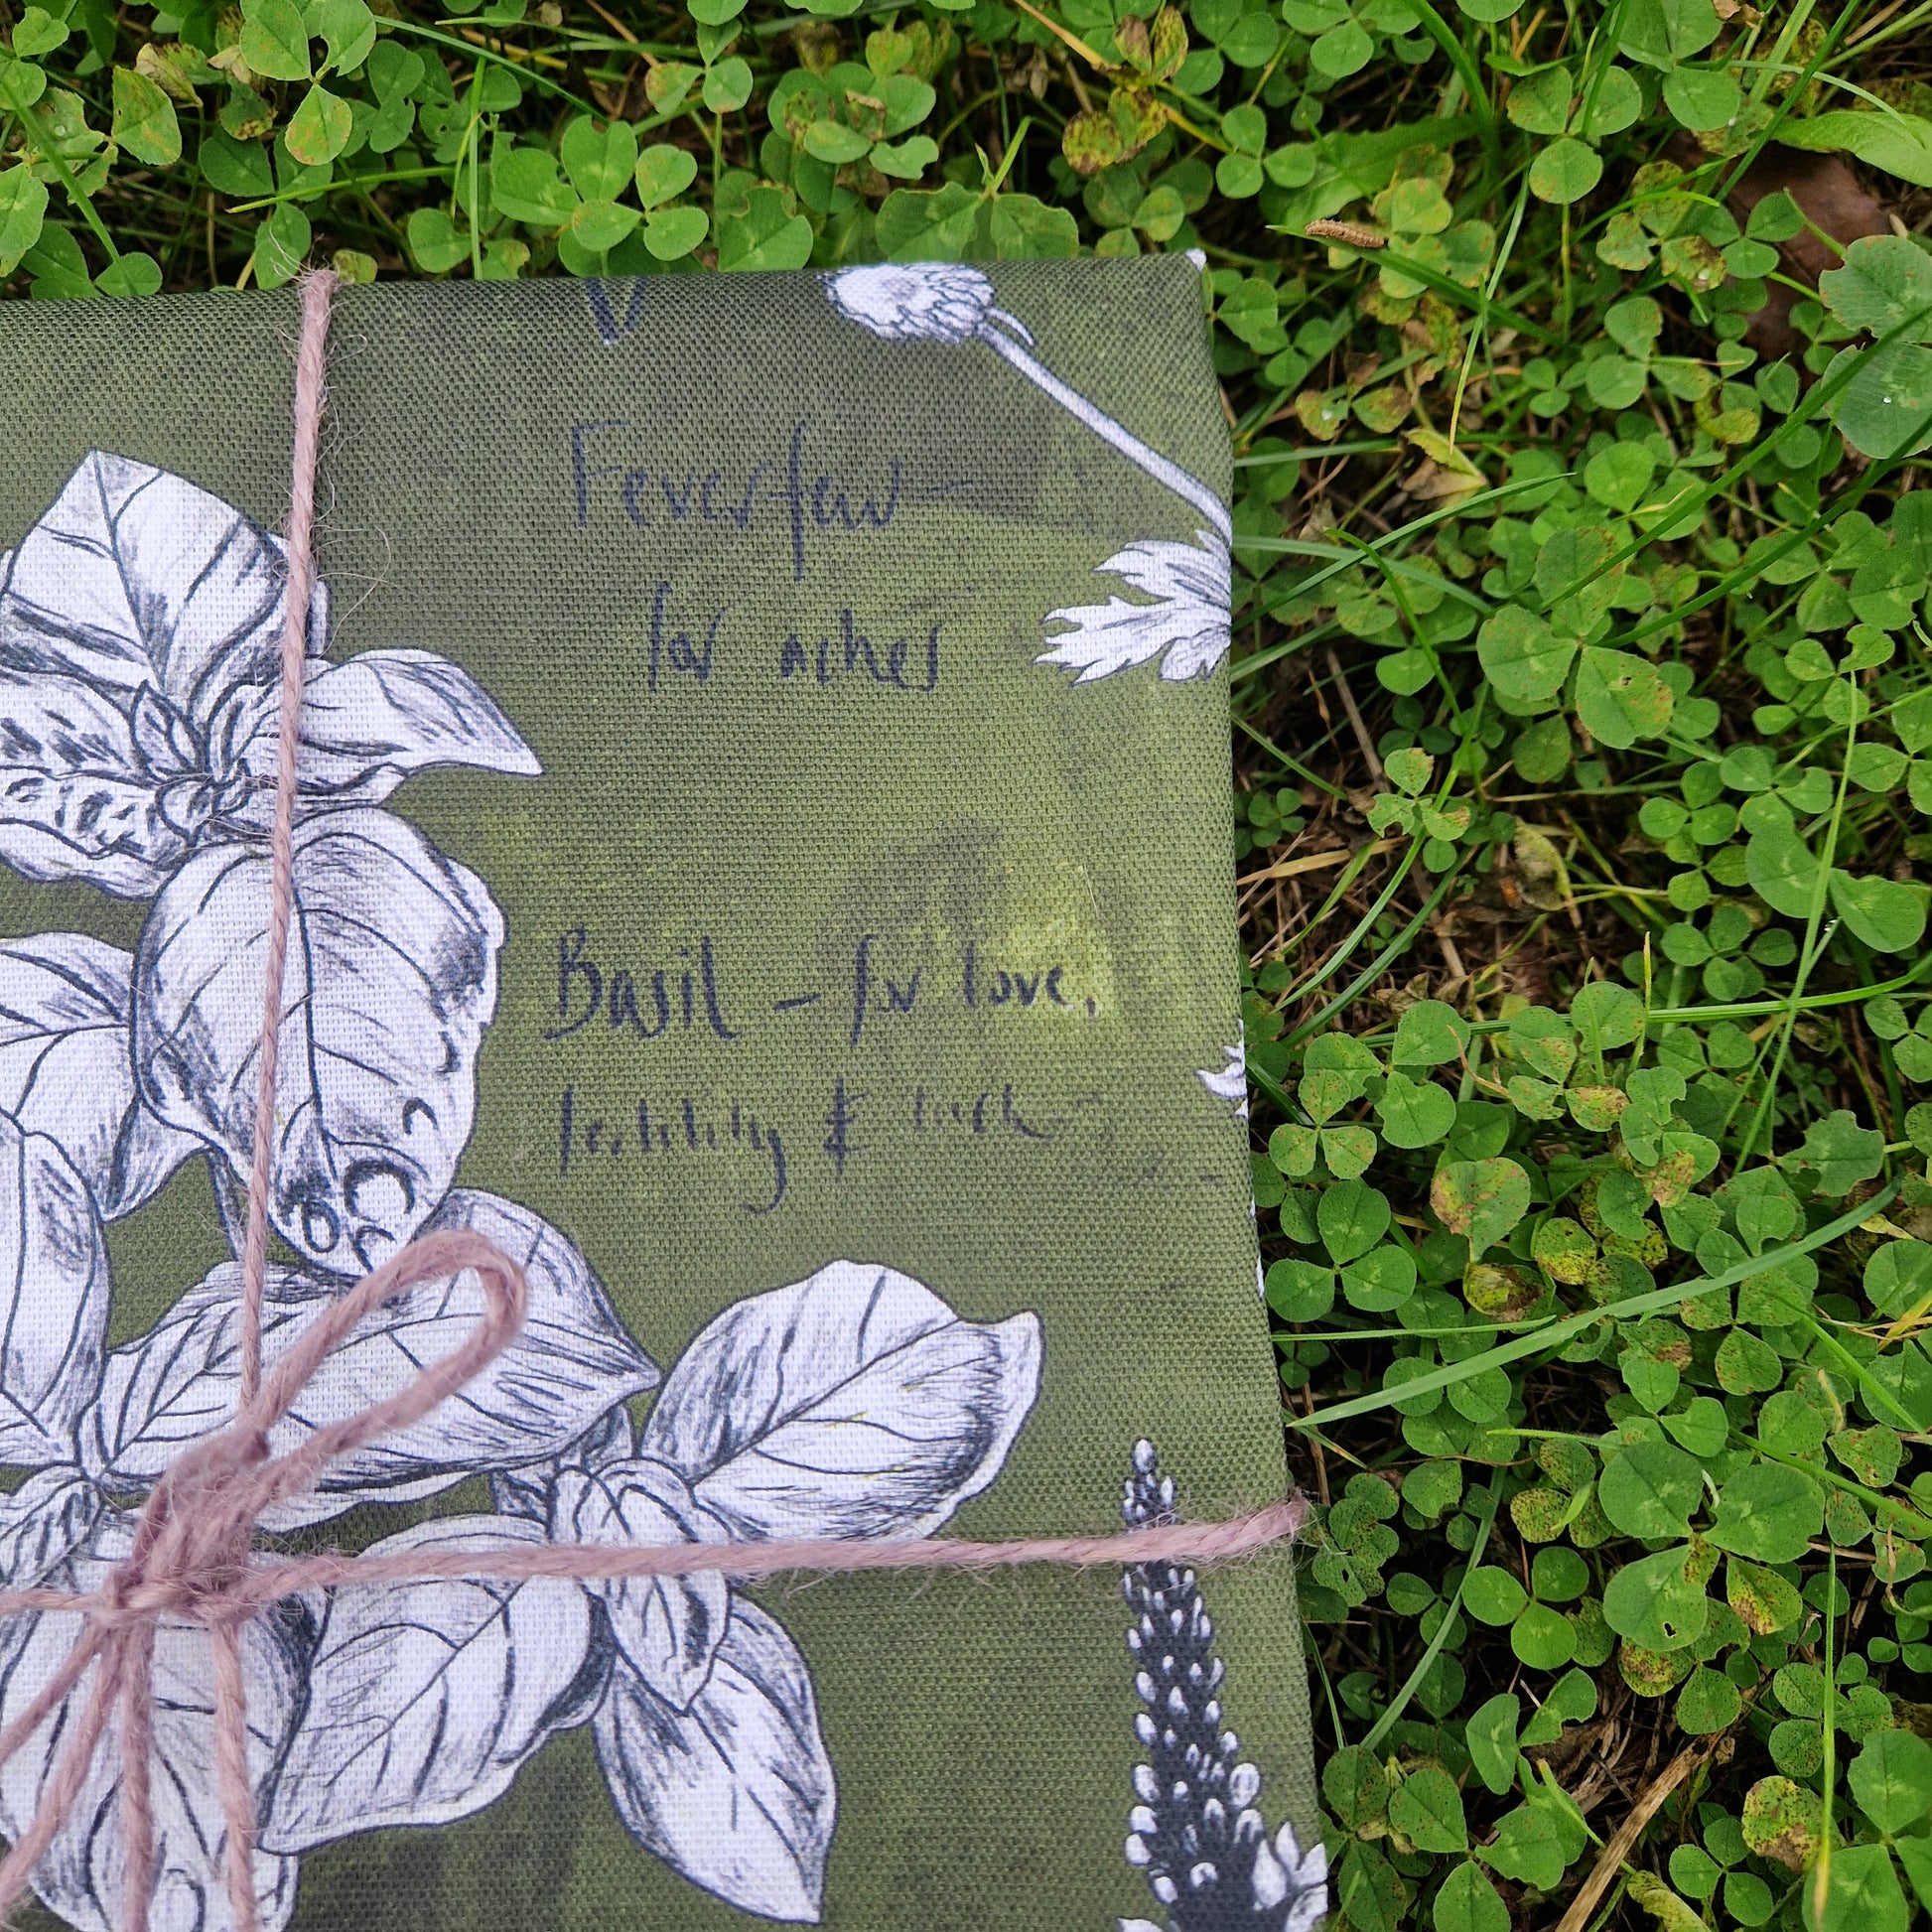 Feverfew –
for aches
Basil – for love,
fertility & luck